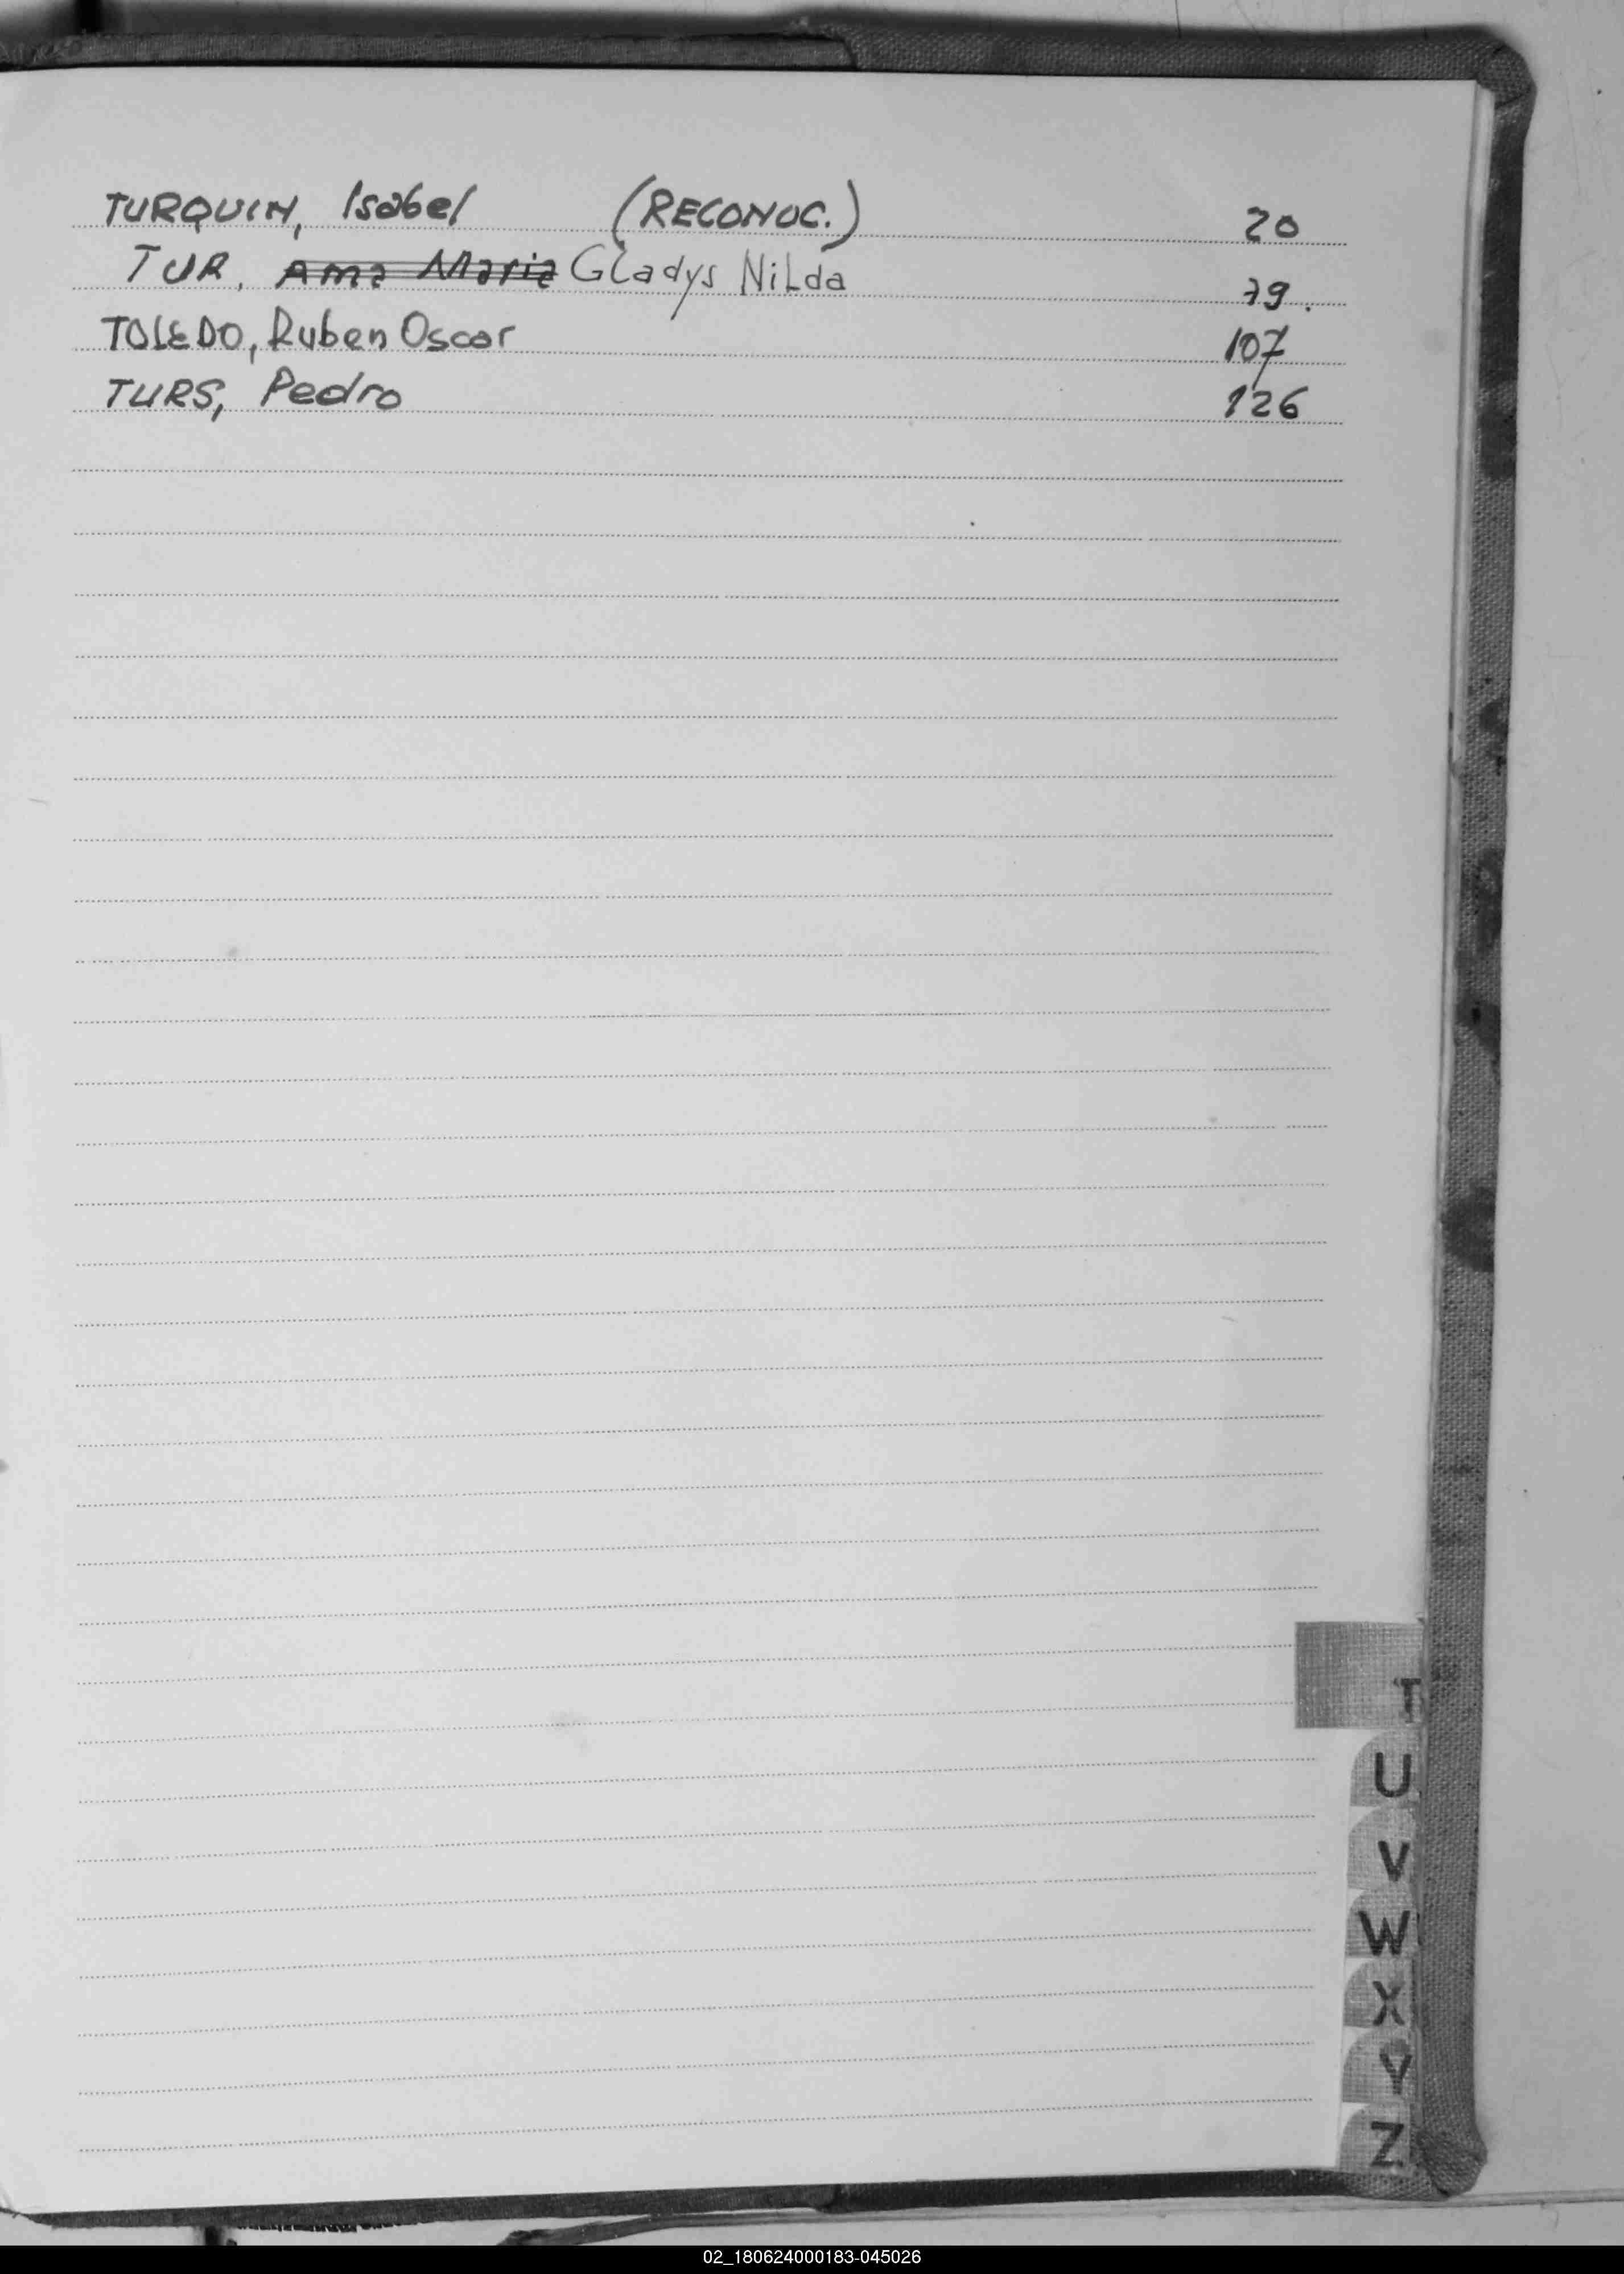 TURQUIN, Isabel (RECONOC.) 20
TUR, Ana Maria Gladys Nilda 79.
TOLEDO, Ruben Oscar 107
TURS, Pedro 126
T
U
V
W
X
Y
Z
02_180624000183-045026